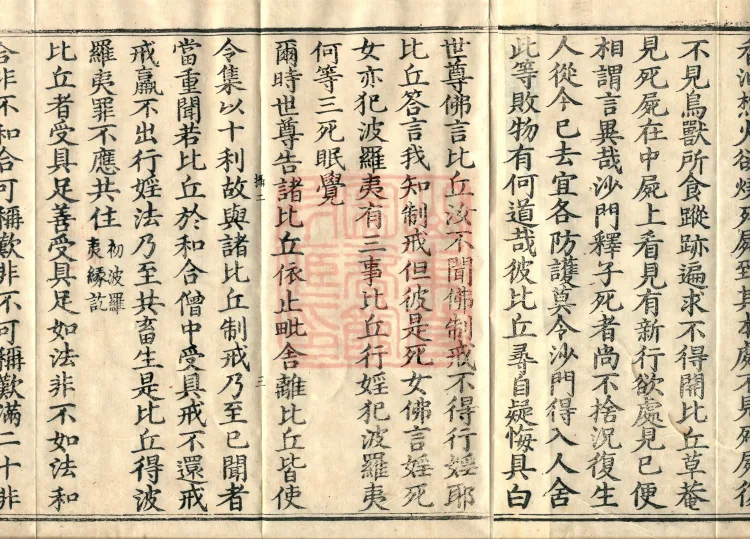 火欲燒死屍至其本處不見死屍
不見鳥獸所食蹤跡遍求不得開比丘草菴
見死屍在中屍上看見有新行欲處見已便
相謂言異哉沙門釋子死者尚不捨況復生
人從今已去宜各防護莫令沙門得入人舍
此等敗物有何道哉彼比丘尋自疑悔具白
世尊佛言比丘汝不聞佛制戒不得行婬耶
比丘答言我知制戒但彼是死女佛言婬死
女亦犯波羅夷有三事比丘行婬犯波羅夷
何等三死眠覺
爾時世尊告諸比丘依止毗舍離比丘皆使
攝二 三
令集以十利故與諸比丘制戒乃至已聞者
當重聞若比丘於和合僧中受具戒不還戒
戒羸不出行婬法乃至共畜生是比丘得波
羅夷罪不應共住
初波羅
夷緣訖
比丘者受具足善受具足如法非不如法和
合非不和合可稱歎非不可稱歎滿二十非